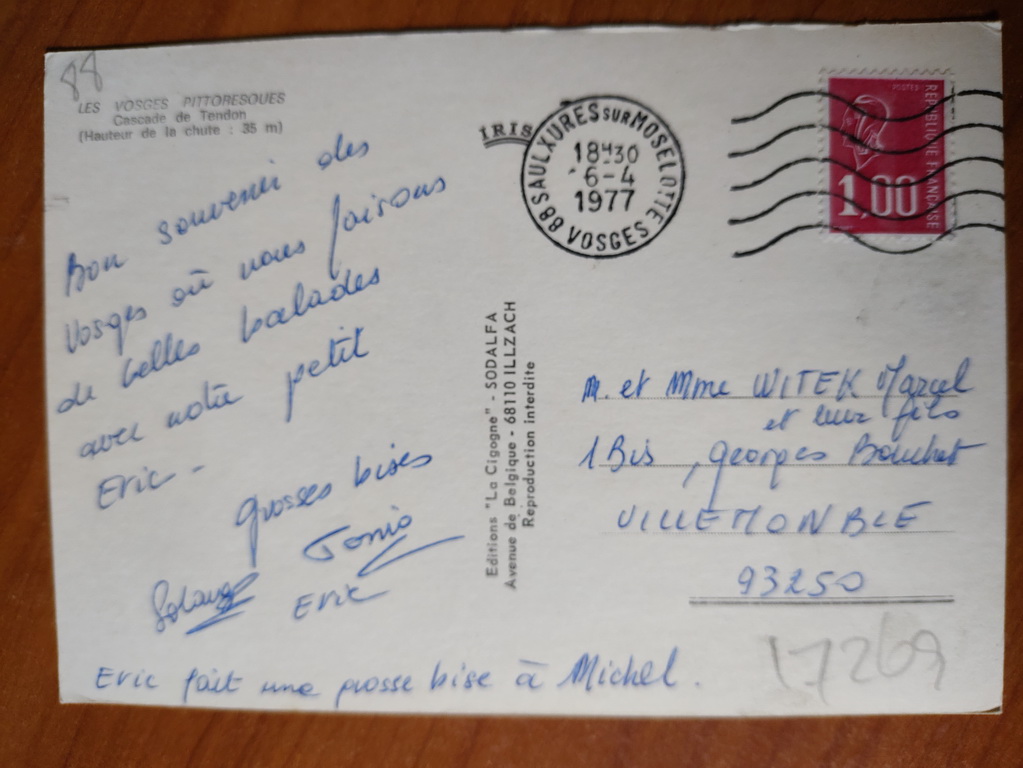 88
LES VOSGES PITTORESQUES
Cascade de Tendon
(Hauteur de la chute : 35 m)
Bon souvenir des
Vosges où nous faisons
de belles balades
avec notre petit
Eric -
grosses bises
Tonio
Solange
Eric
Eric fait une grosse bise à Michel.
IRIS
88 SAULXURES SUR MOSELOTTE
18H30
6-4
1977
VOSGES
POSTES
REPUBLIQUE FRANÇAISE
1,00
Editions "La Cigogne" - SODALFA
Avenue de Belgique - 68110 ILLZACH
Reproduction interdite
M. et Mme WITEK Marcel
et leur fils
1 Bis, Georges Bouchet
VILLEMONBLE
93250
17269